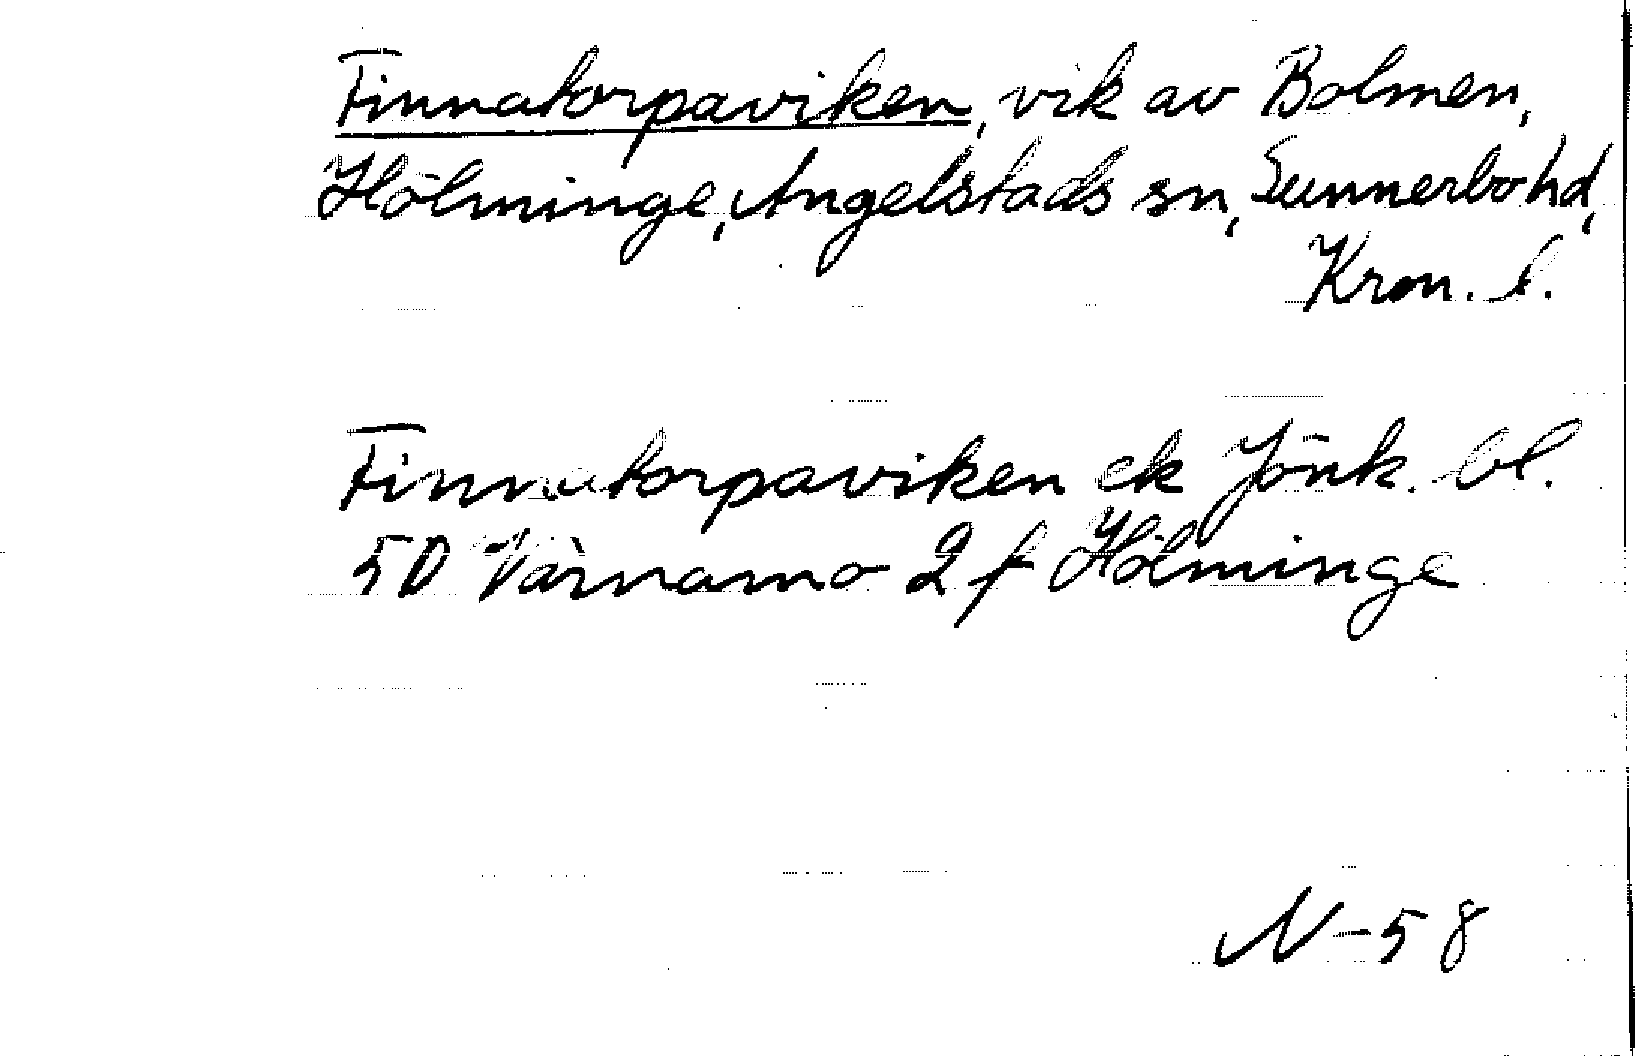 Finnatorpaviken, vik av Bolmen,
Hölminge, Angelstads sn, Sunnerbo hd,
Kron. l.
Finnatorpaviken ek Jönk. bl.
5D Värnamo 2 f Hölminge
N-58